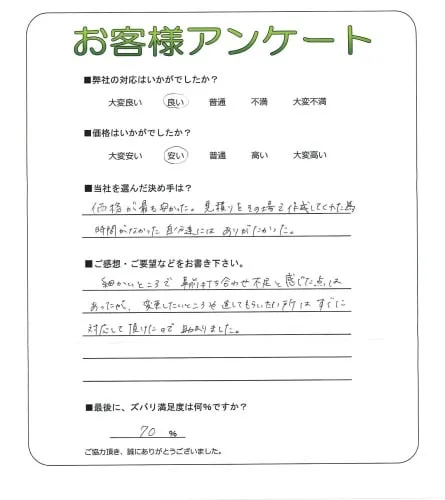 お客様アンケート
■弊社の対応はいかがでしたか?
大変良い 良い 普通 不満 大変不満
■価格はいかがでしたか?
大変安い 安い 普通 高い 大変高い
■当社を選んだ決め手は?
価格が最も安かった。見積りをその場で作成してくれた為
時間がなかった自分達にはありがたかった。
■ご感想・ご要望などをお書き下さい。
細かいところで事前打ち合わせ不足と感じた点は
あったが、変更したいところや直してもらいたい所はすぐに
対応して頂けたので助かりました。
■最後に、ズバリ満足度は何%ですか?
70 %
ご協力頂き、誠にありがとうございました。